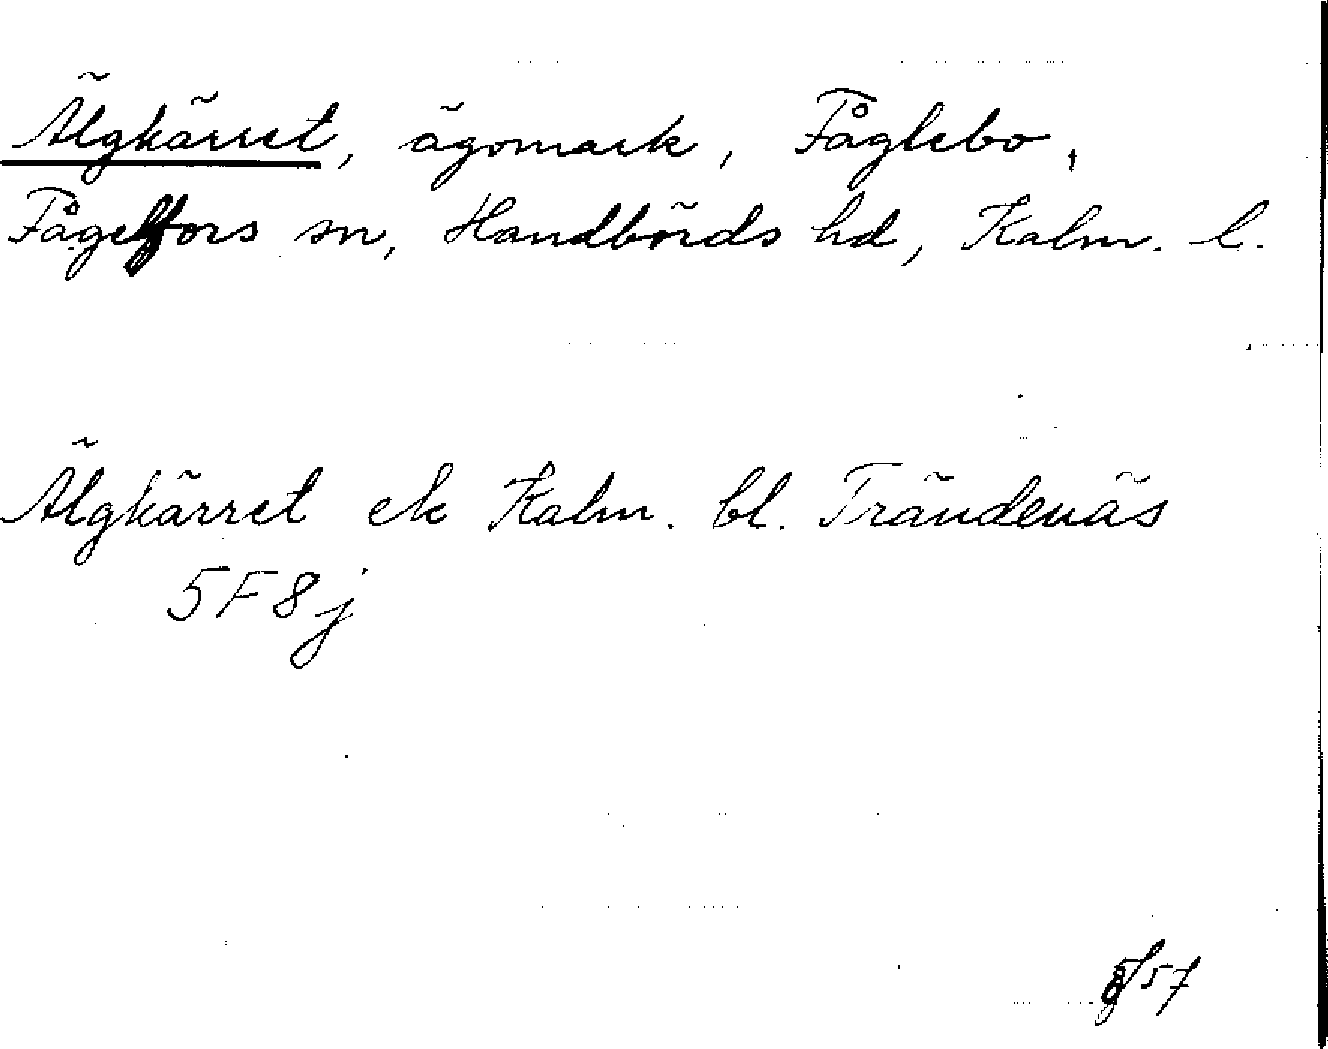 Älgkärret, ägomark, Fåglebo,
Fågelfors sn, Handbörds hd, Kalm. l.
Älgkärret ek Kalm. bl. Trändenäs
5F8j